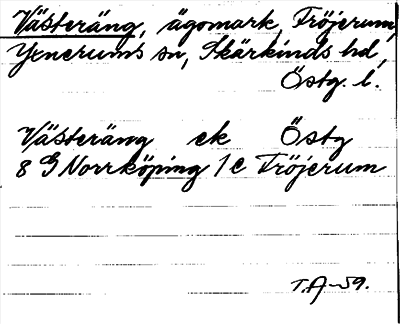 Västeräng, ägomark, Fröjerum,
Yxnerums sn, Skärkinds hd,
Östg. l.
Västeräng ek Östg
8 G Norrköping 1 c Fröjerum
T.A-59.